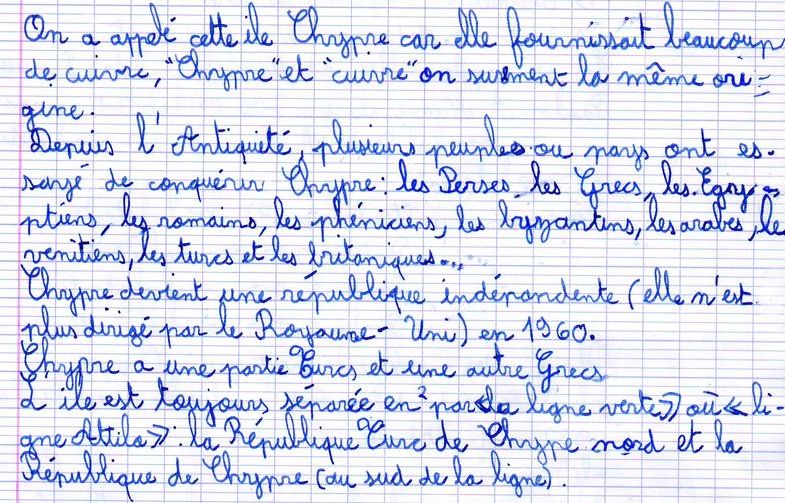 On a appelé cette ile Chypre car elle fournissait beaucoup
de cuivre, "Chypre" et "cuivre" on surement la même ori=
gine.
Depuis l'Antiquité, plusieurs peuples ou pays ont es-
sayé de conquérir Chypre : les Perses, les Grecs, les Egyp=
ptiens, les romains, les phéniciens, les byzantins, les arabes, le
venitiens, les turcs et les britaniques...
Chypre devient une république indépendente (elle n'est
plus dirigé par le Royaume-Uni) en 1960.
Chypre a une partie Turcs et une autre Grecs
L'ile est toujours séparée en 2 par «la ligne verte» où « li-
gne Attila» : la République Turc de Chype nord et la
République de Chypre (au sud de la ligne).